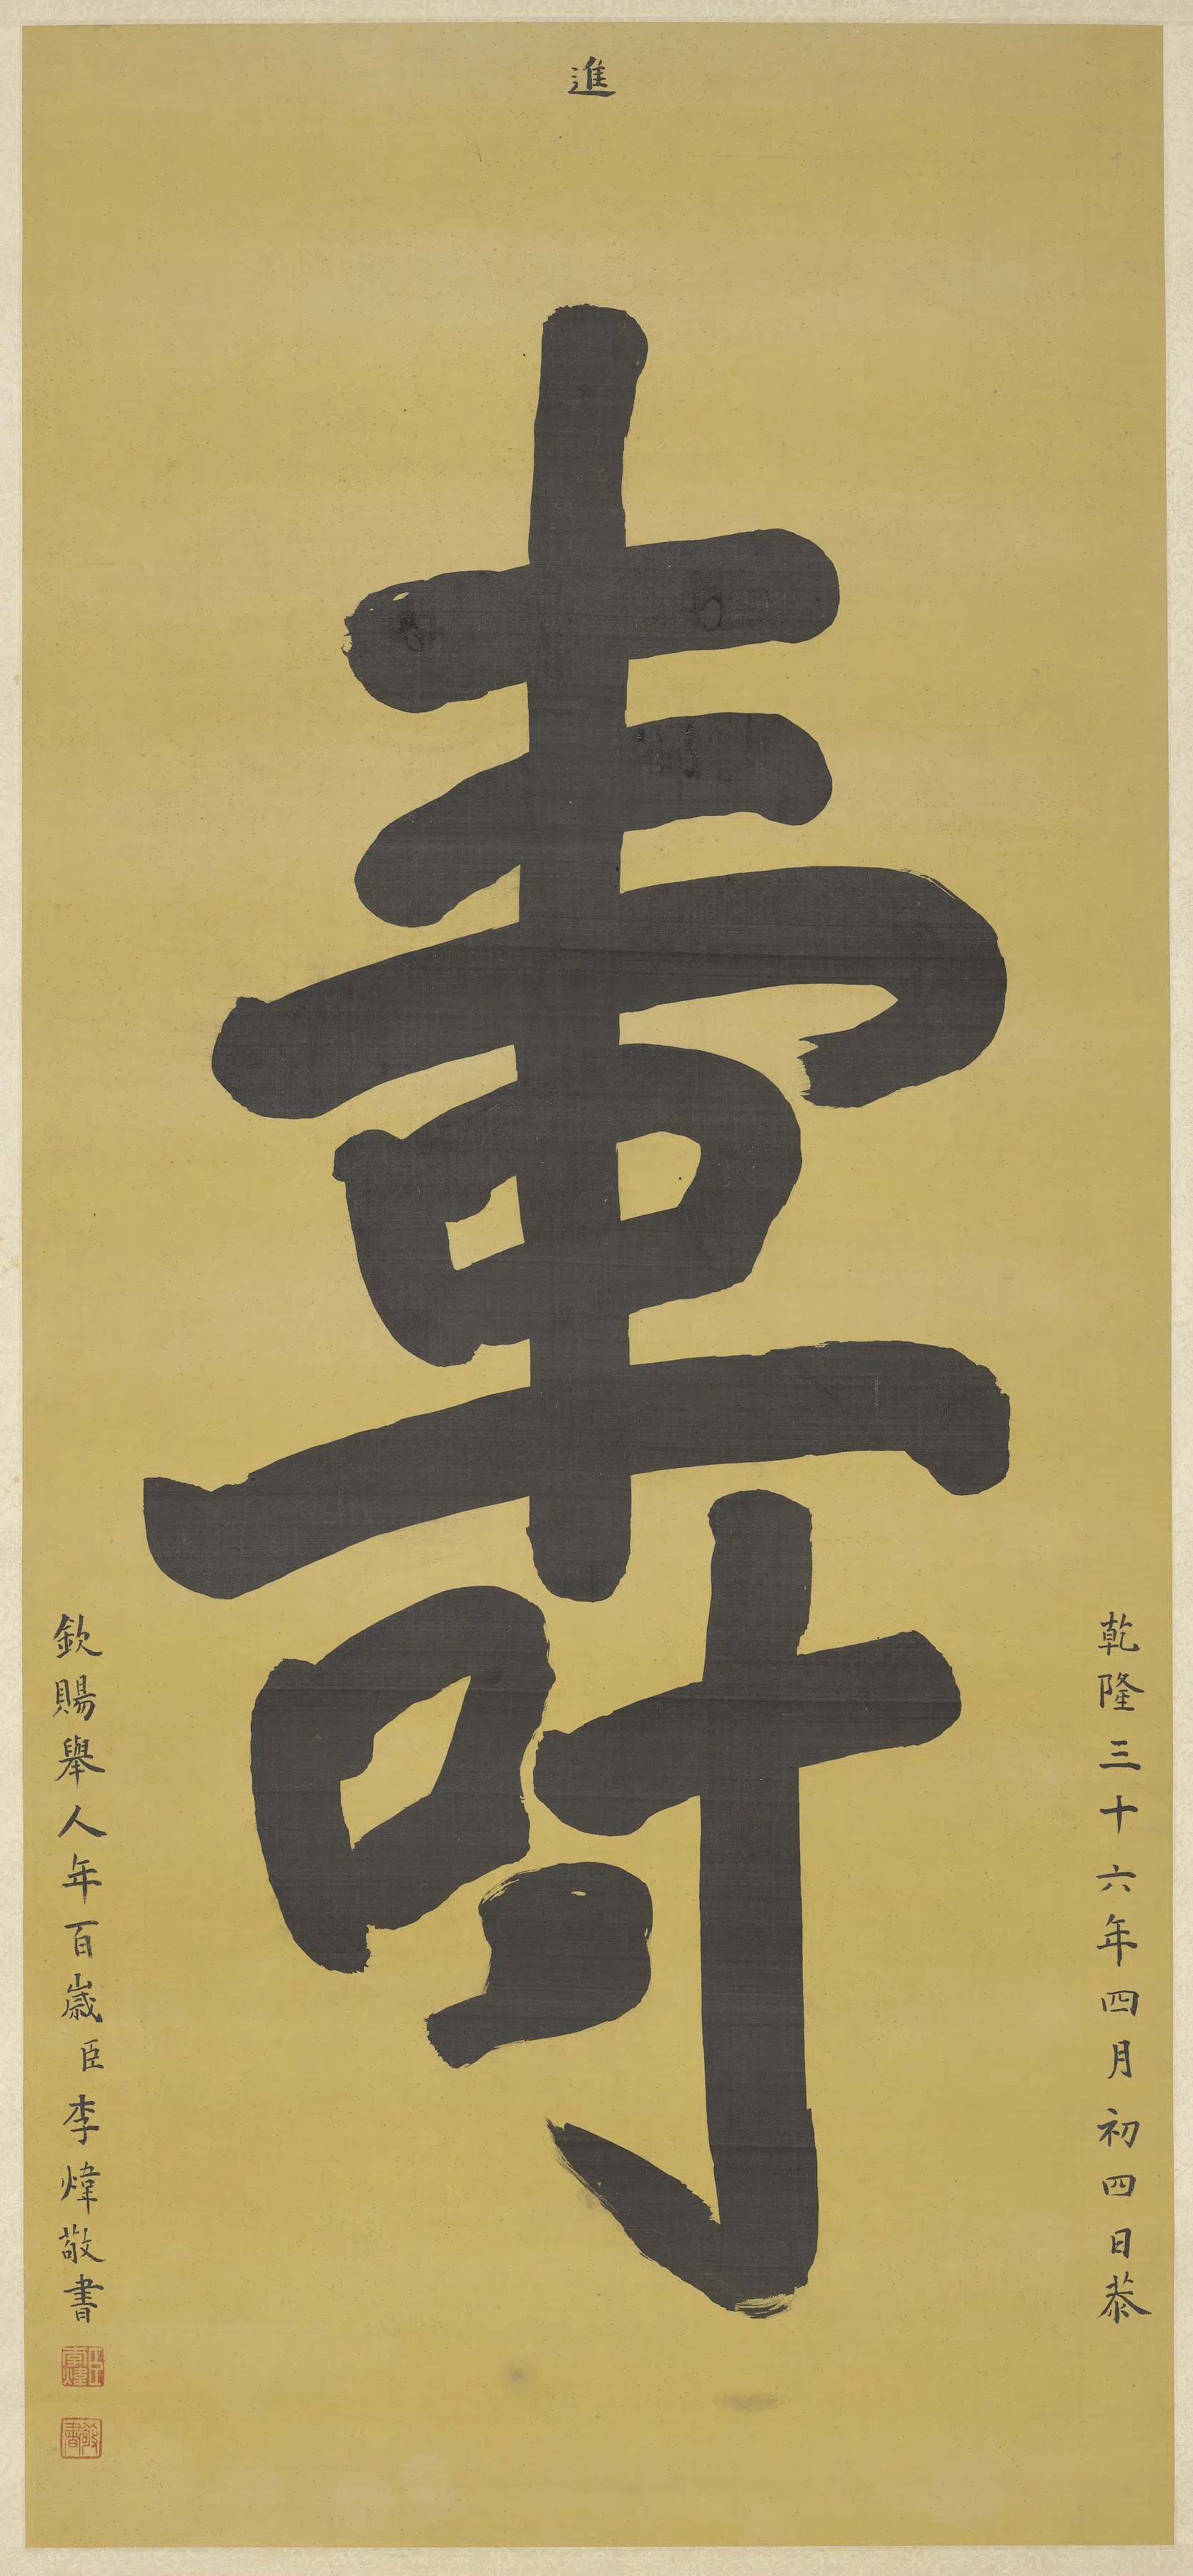 乾隆三十六年四月初四日恭
進
壽
欽賜舉人年百歲臣李煒敬書
臣李煒
敬書